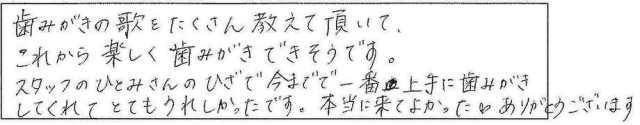 歯みがきの歌をたくさん教えて頂いて、
これから楽しく歯みがきできそうです。
スタッフのひとみさんのひざで今までで一番上手に歯みがき
してくれてとてもうれしかったです。本当に来てよかったわありがとうございます